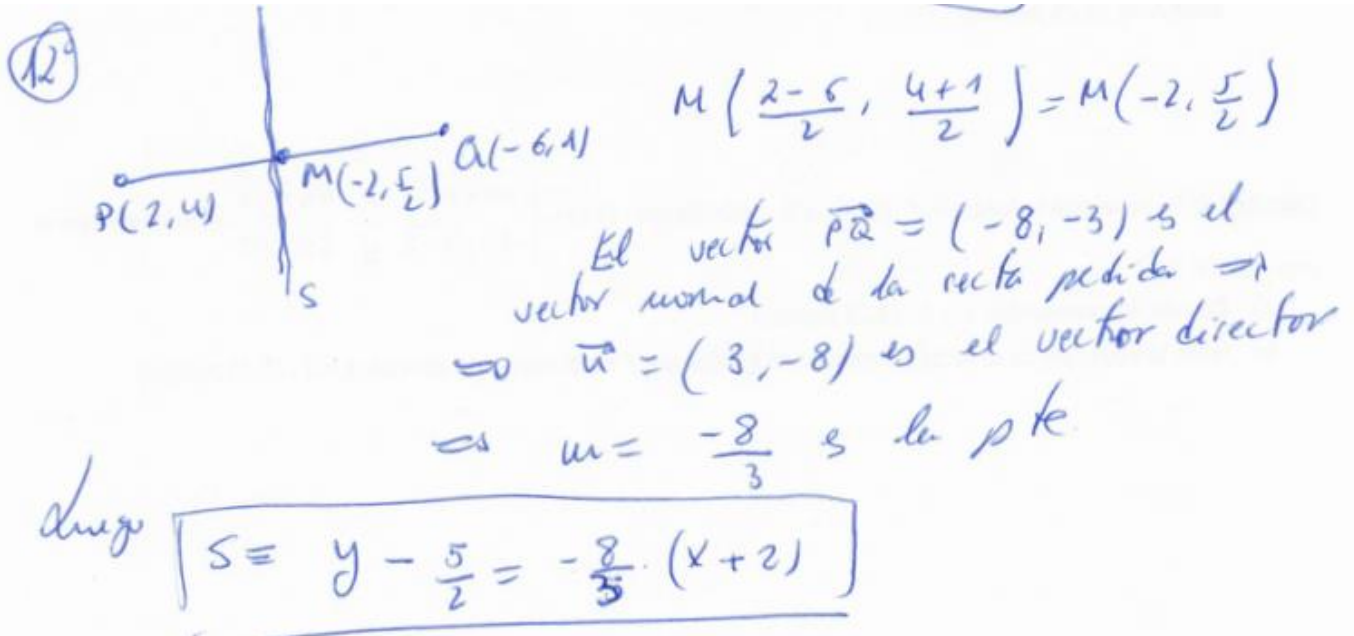 12º
M(\frac{2-6}{2}, \frac{4+1}{2}) = M(-2, \frac{5}{2})
Q(-6,1)
M(-2, \frac{5}{2})
P(2,4)
s
El vector \vec{PQ} = (-8,-3) es el
vector normal de la recta pedida ⇒
⇒ \vec{u} = (3,-8) es el vector director
⇒ m = \frac{-8}{3} es la pte.
Luego
S ≡ y - \frac{5}{2} = -\frac{8}{3} · (x+2)